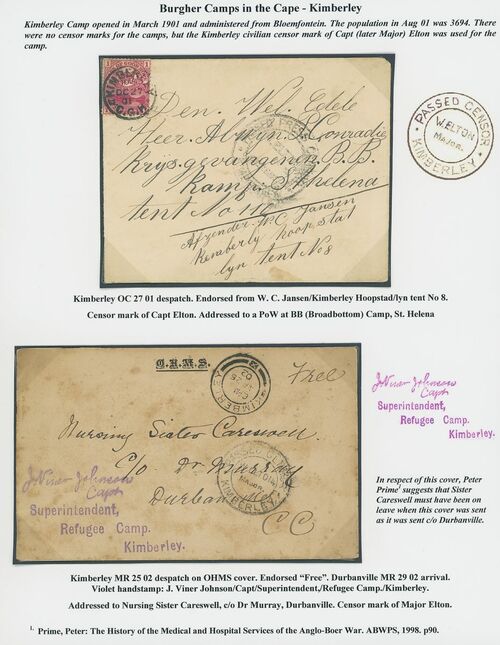 Burgher Camps in the Cape - Kimberley
Kimberley Camp opened in March 1901 and administered from Bloemfontein. The population in Aug 01 was 3694. There
were no censor marks for the camps, but the Kimberley civilian censor mark of Capt (later Major) Elton was used for the
camp.
KIMBERLEY
OC 27
01
C.G.H.
Den. Wel. Edele
Heer Alwyn. S. Conradie
Krysgevangenin B.B.
Kamp. St helena
tent No 114
Afzender W C Jansen
Kemberly hoop stat
lyn tent No 8
PASSED CENSOR
W. ELTON
Major.
KIMBERLEY
Kimberley OC 27 01 despatch. Endorsed from W. C. Jansen/Kimberley Hoopstad/lyn tent No 8.
Censor mark of Capt Elton. Addressed to a PoW at BB (Broadbottom) Camp, St. Helena
O.H.M.S.
KIMBERLEY
02
Free
Nursing Sister Careswell
C/o Dr Murray
Durbanville
CC
PASSED CENSOR
Major.
KIMBERLEY
J. Viner Johnson
Capt
Superintendent,
Refugee Camp.
Kimberley.
J. Viner Johnson
Capt
Superintendent,
Refugee Camp.
Kimberley.
In respect of this cover, Peter
Prime¹ suggests that Sister
Careswell must have been on
leave when this cover was sent
as it was sent c/o Durbanville.
Kimberley MR 25 02 despatch on OHMS cover. Endorsed "Free". Durbanville MR 29 02 arrival.
Violet handstamp: J. Viner Johnson/Capt/Superintendent,/Refugee Camp./Kimberley.
Addressed to Nursing Sister Careswell, c/o Dr Murray, Durbanville. Censor mark of Major Elton.
1. Prime, Peter: The History of the Medical and Hospital Services of the Anglo-Boer War. ABWPS, 1998. p90.